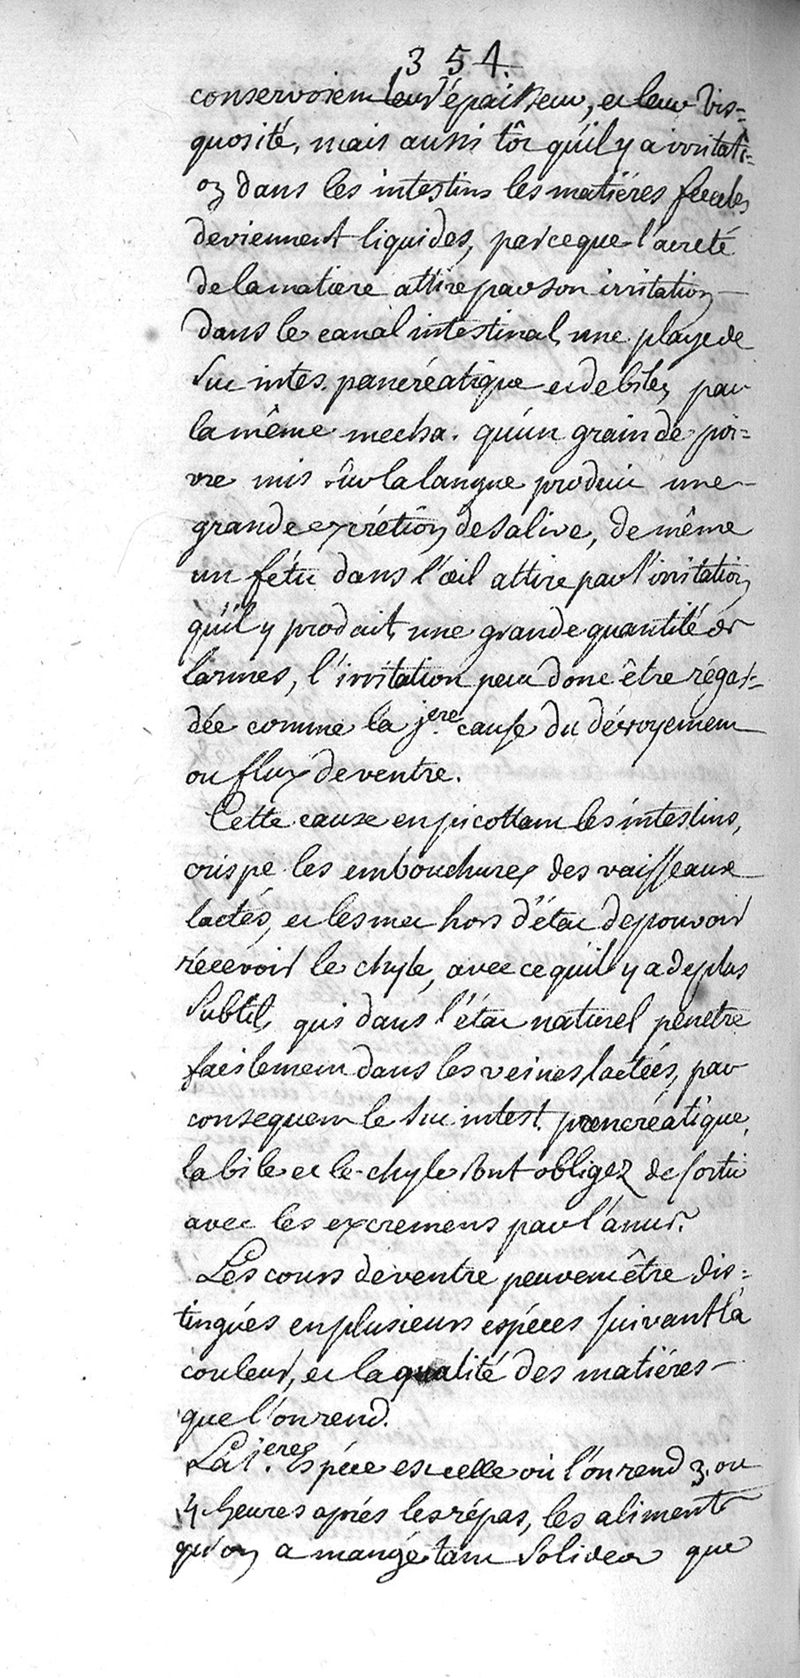 354.
conservoient leur épaisseur, et leur vis=
quosité, mais aussi tôt qu'il y a irritati=
on dans les intestins les matiéres fecales
deviennent liquides, parceque l'acreté
de la matiere attire par son irritation
dans le canal intestinal, une playe de
suc intes. pancréatique et de bile, par
la même mecha. qu'un grain de poi=
vre mis sur la langue produit une
grande excrétion de salive, de même
un fétu dans l'œil attire par l'irritation
qu'il y produit, une grande quantité de
larmes, l'irritation peut donc être régar=
dée comme la 1ere cause du dévoyement
ou flux de ventre.
Cette cause en picottant les intestins,
crispe les embouchures des vaisseaux
lactés, et les met hors d'état de pouvoir
récevoir le chyle, avec ce qu'il y a de plus
subtil, qui dans l'état naturel penetre
facilement dans les veines lactées, par
consequent le suc intest. pancréatique,
la bile et le chyle sont obligez de sortir
avec les excremens par l'anus.
Les cours de ventre peuvent être dis=
tingués en plusieurs espéces suivant la
couleur, et la qualité des matiéres
que l'on rend.
La 1.ere espéce est celle où l'on rend 3. ou
4 heures aprés les répas, les aliments
qu'on a mangé tant solides que